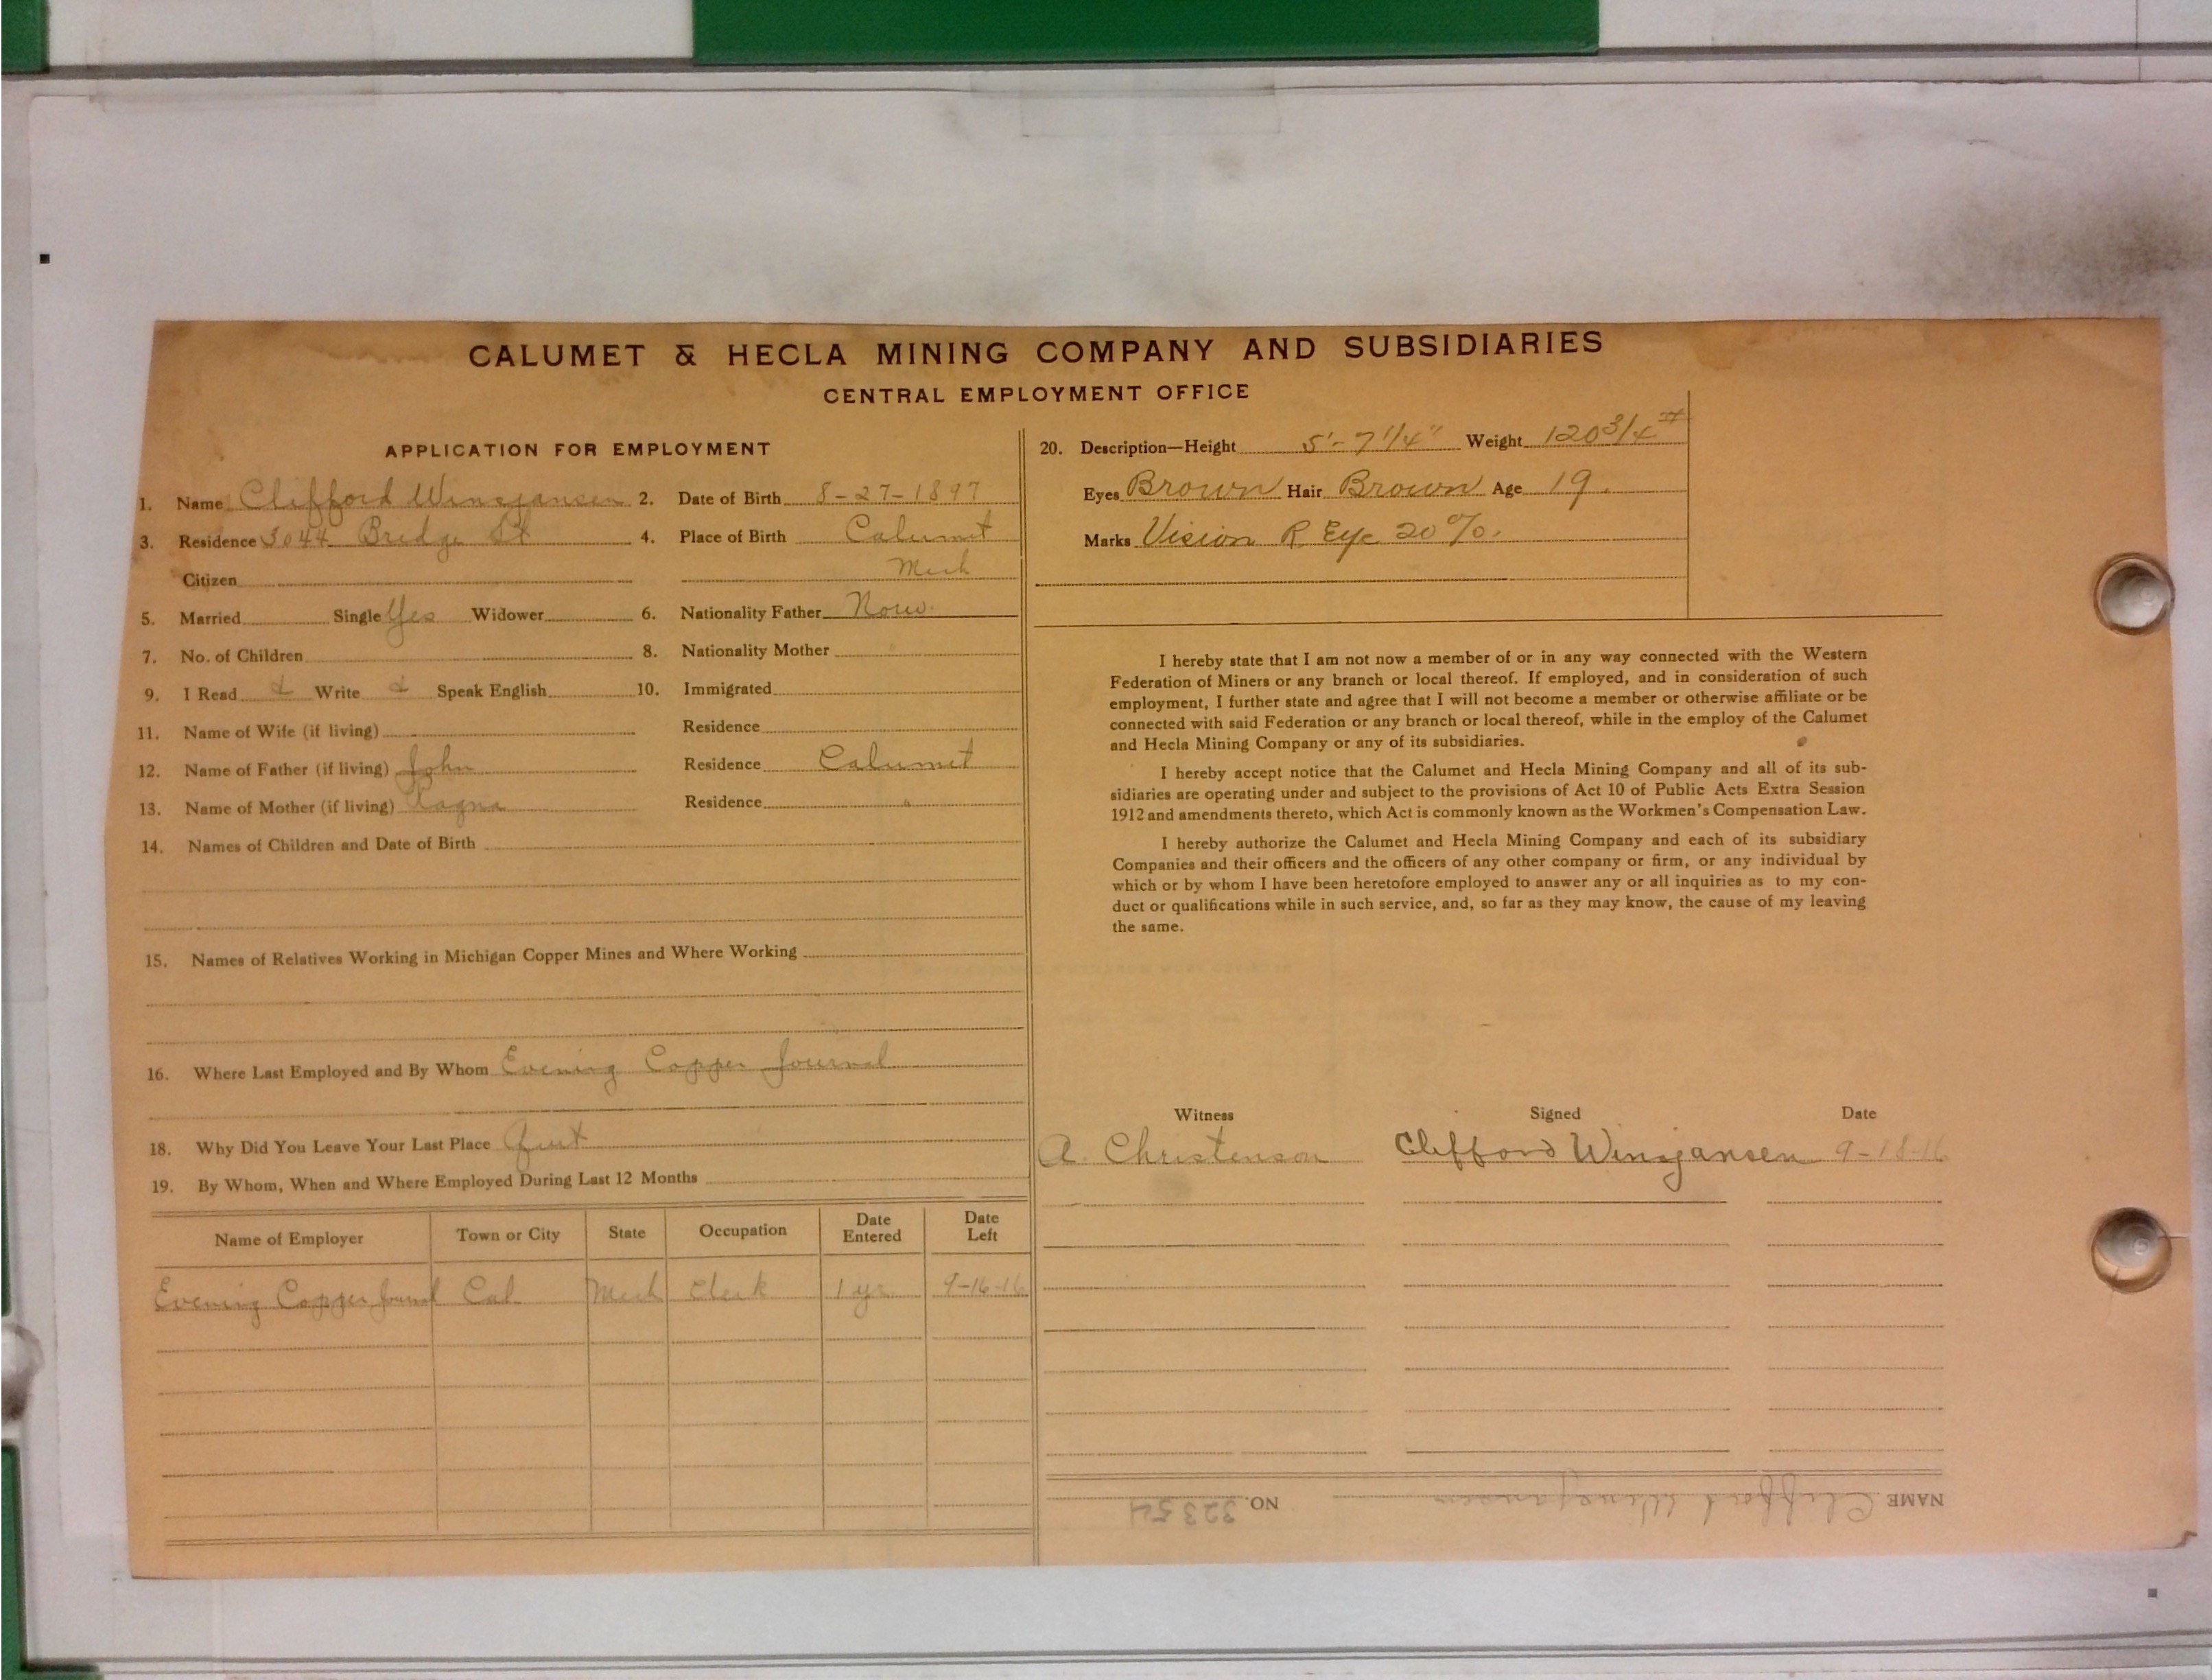 CALUMET & HECLA MINING COMPANY AND SUBSIDIARIES
CENTRAL EMPLOYMENT OFFICE
APPLICATION FOR EMPLOYMENT
1. Name Clifford Winsjansen 2. Date of Birth 8-27-1897
3. Residence 3044 Bridge St 4. Place of Birth Calumet
Citizen Mich
5. Married Single Yes Widower 6. Nationality Father Norw.
7. No. of Children 8. Nationality Mother
9. I Read & Write & Speak English 10. Immigrated
11. Name of Wife (if living) Residence
12. Name of Father (if living) John Residence Calumet
13. Name of Mother (if living) Ragna Residence "
14. Names of Children and Date of Birth
15. Names of Relatives Working in Michigan Copper Mines and Where Working
16. Where Last Employed and By Whom Evening Copper Journal
18. Why Did You Leave Your Last Place Quit
19. By Whom, When and Where Employed During Last 12 Months
Name of Employer Town or City State Occupation Date Entered Date Left
Evening Copper Journal Cal Mich Clerk 1 yr. 9-16-16
20. Description—Height 5'-7 1/4" Weight 120 3/4 #
Eyes Brown Hair Brown Age 19.
Marks Vision R Eye 20%.
I hereby state that I am not now a member of or in any way connected with the Western
Federation of Miners or any branch or local thereof. If employed, and in consideration of such
employment, I further state and agree that I will not become a member or otherwise affiliate or be
connected with said Federation or any branch or local thereof, while in the employ of the Calumet
and Hecla Mining Company or any of its subsidiaries.
I hereby accept notice that the Calumet and Hecla Mining Company and all of its sub-
sidiaries are operating under and subject to the provisions of Act 10 of Public Acts Extra Session
1912 and amendments thereto, which Act is commonly known as the Workmen's Compensation Law.
I hereby authorize the Calumet and Hecla Mining Company and each of its subsidiary
Companies and their officers and the officers of any other company or firm, or any individual by
which or by whom I have been heretofore employed to answer any or all inquiries as to my con-
duct or qualifications while in such service, and, so far as they may know, the cause of my leaving
the same.
Witness Signed Date
A. Christenson Clifford Winsjansen 9-18-16
NAME Clifford Winsjansen NO. 32354